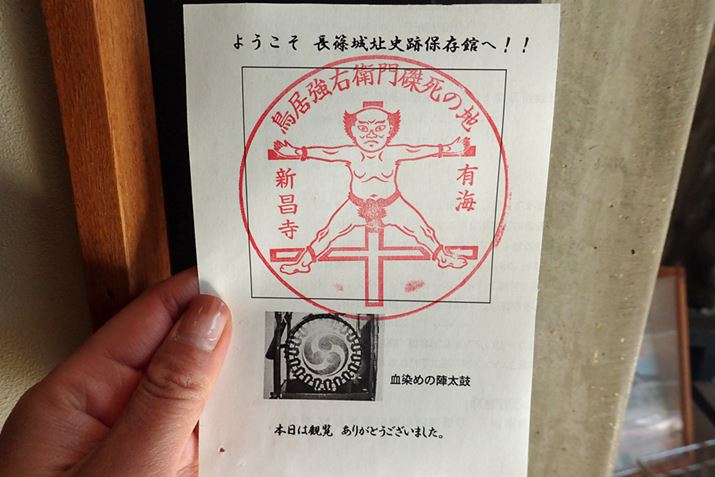 ようこそ 長篠城址史跡保存館へ！！
鳥居強右衛門磔死の地
新昌寺
有海
血染めの陣太鼓
本日は観覧 ありがとうございました。